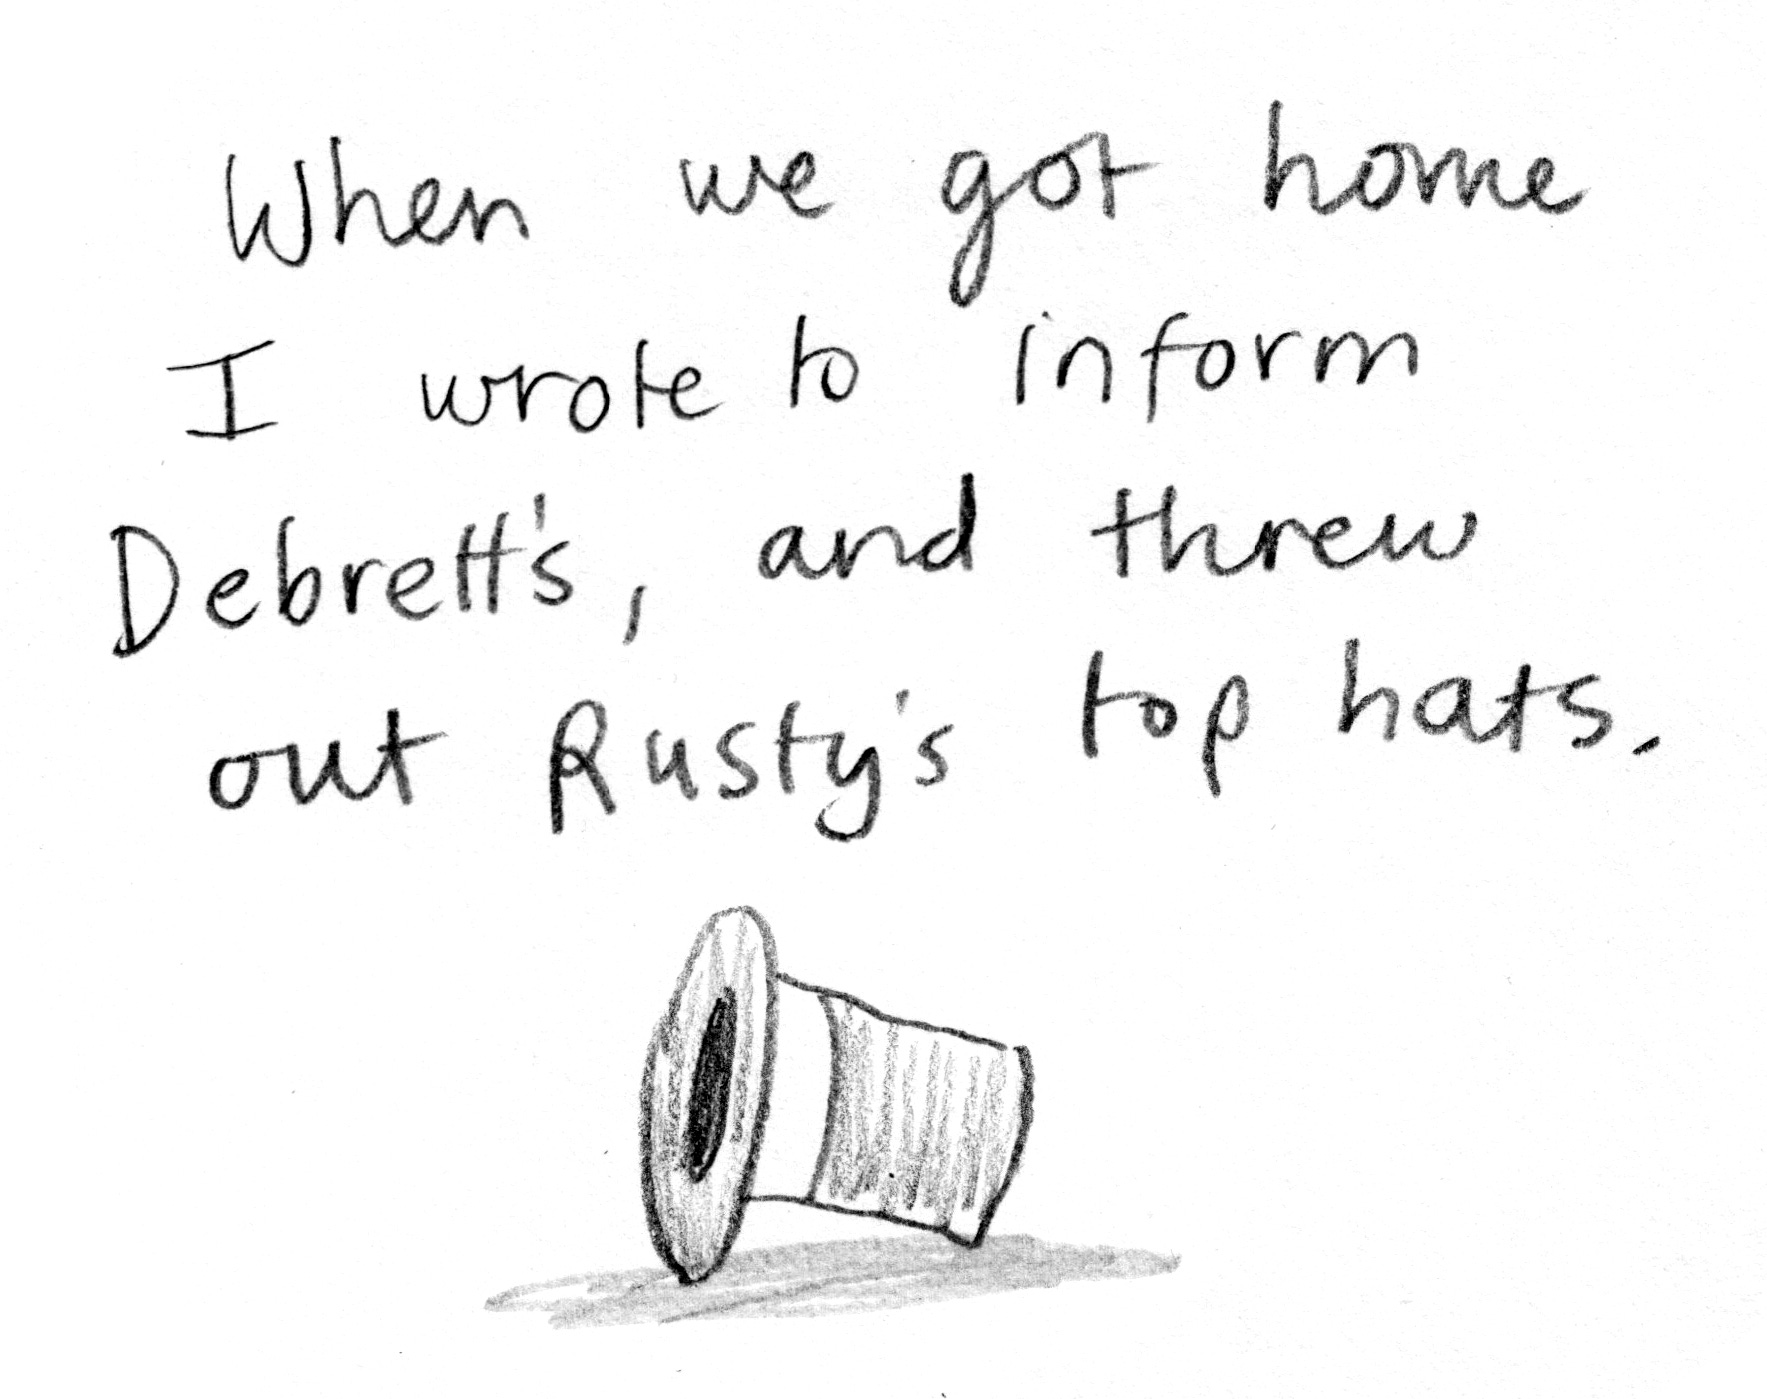 When we got home
I wrote to inform
Debrett's, and threw
out Rusty's top hats.